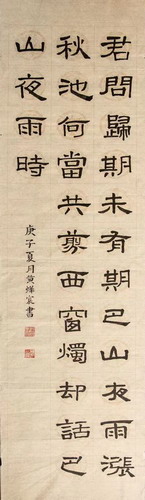 君問歸期未有期巴山夜雨漲
秋池何當共剪西窗燭却話巴
山夜雨時
庚子夏月黄